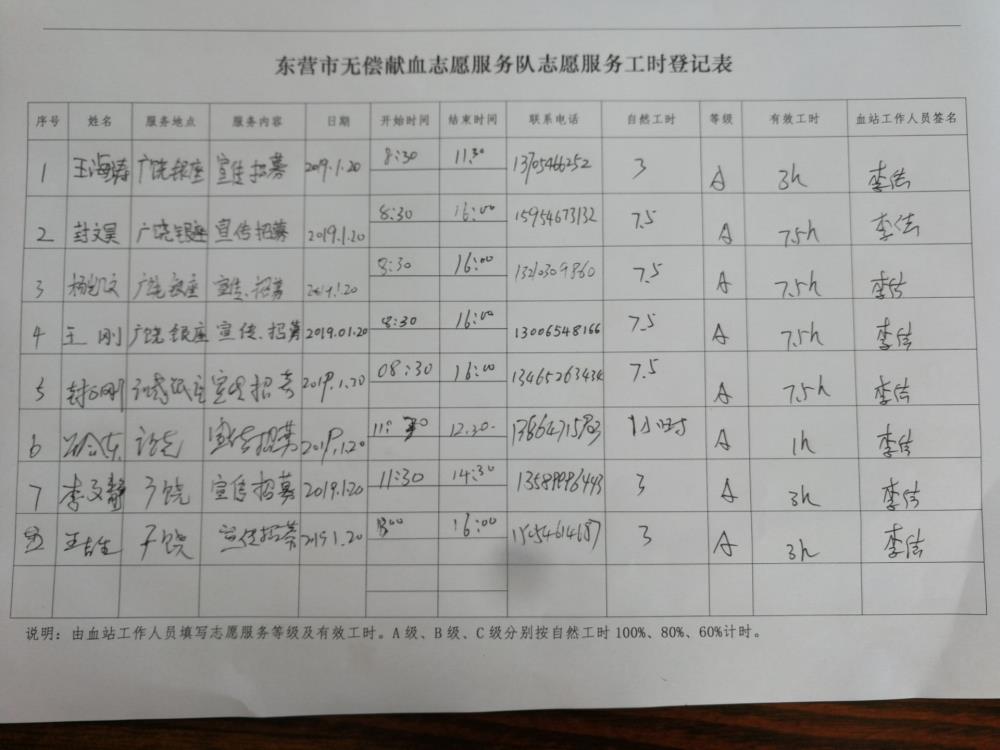 东营市无偿献血志愿服务队志愿服务工时登记表
序号 姓名 服务地点 服务内容 日期 开始时间 结束时间 联系电话 自然工时 等级 有效工时 血站工作人员签名
1 王海涛 广饶银座 宣传招募 2019.1.20 8:30 11:30 13705466252 3 A 3h 李洁
2 封文昊 广饶银座 宣传招募 2019.1.20 8:30 16:00 15954673132 7.5 A 7.5h 李洁
3 广饶银座 宣传、招募 2019.1.20 8:30 16:00 13210309860 7.5 A 7.5h 李洁
4 王刚 广饶银座 宣传、招募 2019.01.20 8:30 16:00 13006548166 7.5 A 7.5h 李洁
5 宣传招募 2019.1.20 08:30 16:00 13465263434 7.5 A 7.5h 李洁
6 宣传招募 2019.1.20 12.30 1小时 A 1h 李洁
7 李文静 广饶 宣传招募 2019.1.20 11:30 14:30 13589986443 3 A 3h 李洁
广饶 宣传招募 2019.1.20 16:00 15054614687 3 A 3h 李洁
说明：由血站工作人员填写志愿服务等级及有效工时。A级、B级、C级分别按自然工时100%、80%、60%计时。